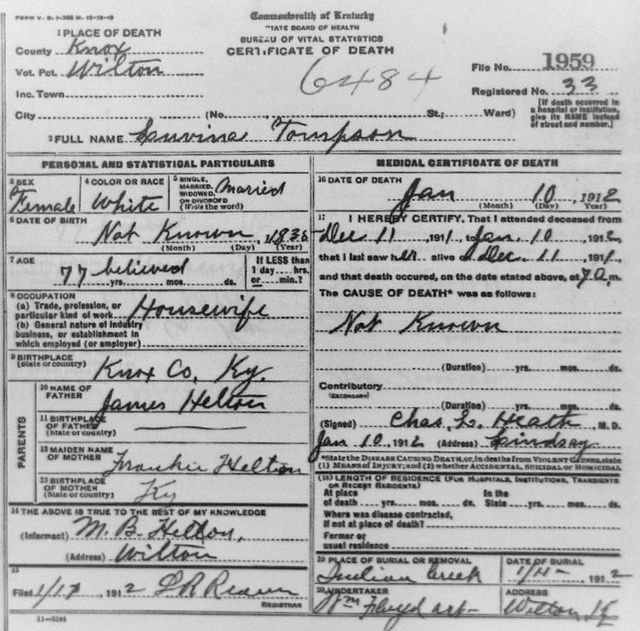 FORM V. S. 1-300 M. 10-19-10
Commonwealth of Kentucky
STATE BOARD OF HEALTH
BUREAU OF VITAL STATISTICS
CERTIFICATE OF DEATH
1 PLACE OF DEATH
County Knox
Vot. Pct. Wilton
Inc. Town
City (No. St.; Ward)
6484
File No. 1959
Registered No. 33
[If death occurred in a hospital or institution, give its NAME instead of street and number.]
2 FULL NAME Luvina Tompson
PERSONAL AND STATISTICAL PARTICULARS
3 SEX Female
4 COLOR OR RACE White
5 SINGLE, MARRIED, WIDOWED, OR DIVORCED (Write the word) Married
6 DATE OF BIRTH Not Known 1836
(Month) (Day) (Year)
7 AGE 77 believed
yrs. mos. ds.
If LESS than 1 day hrs. or min.?
8 OCCUPATION
(a) Trade, profession, or particular kind of work Housewife
(b) General nature of industry business, or establishment in which employed (or employer)
9 BIRTHPLACE (State or country) Knox Co, Ky.
PARENTS
10 NAME OF FATHER James Helton
11 BIRTHPLACE OF FATHER (State or country)
12 MAIDEN NAME OF MOTHER Frankie Helton
13 BIRTHPLACE OF MOTHER (State or country) Ky
14 THE ABOVE IS TRUE TO THE BEST OF MY KNOWLEDGE
(Informant) M. B. Helton,
(Address) Wilton
15
Filed 1/17, 1912 REGISTRAR
11-3184
MEDICAL CERTIFICATE OF DEATH
16 DATE OF DEATH Jan 10, 1912
(Month) (Day) (Year)
17 I HEREBY CERTIFY, That I attended deceased from
Dec 11, 1911, to Jan. 10, 1912
that I last saw her alive Dec. 11, 1911
and that death occured, on the date stated above, at 7 a. m.
The CAUSE OF DEATH* was as follows:
Not Known
(Duration) yrs. mos. ds.
Contributory
(SECONDARY)
(Duration) yrs. mos. ds.
(Signed) Chas. L. Heath M. D.
Jan 10, 1912 (Address) Lindsay
*State the DISEASE CAUSING DEATH, or, in deaths from VIOLENT CAUSES, state (1) MEANS OF INJURY; and (2) whether ACCIDENTAL, SUICIDAL or HOMICIDAL
(18) LENGTH OF RESIDENCE (FOR HOSPITALS, INSTITUTIONS, TRANSIENTS OR RECENT RESIDENTS)
At place of death yrs. mos. ds. In the State yrs. mos. ds.
Where was disease contracted, if not at place of death?
Former or usual residence
19 PLACE OF BURIAL OR REMOVAL Indian Creek
DATE OF BURIAL 1/11- 1912
20 UNDERTAKER Wm Floyd
ADDRESS Wilton, Ky